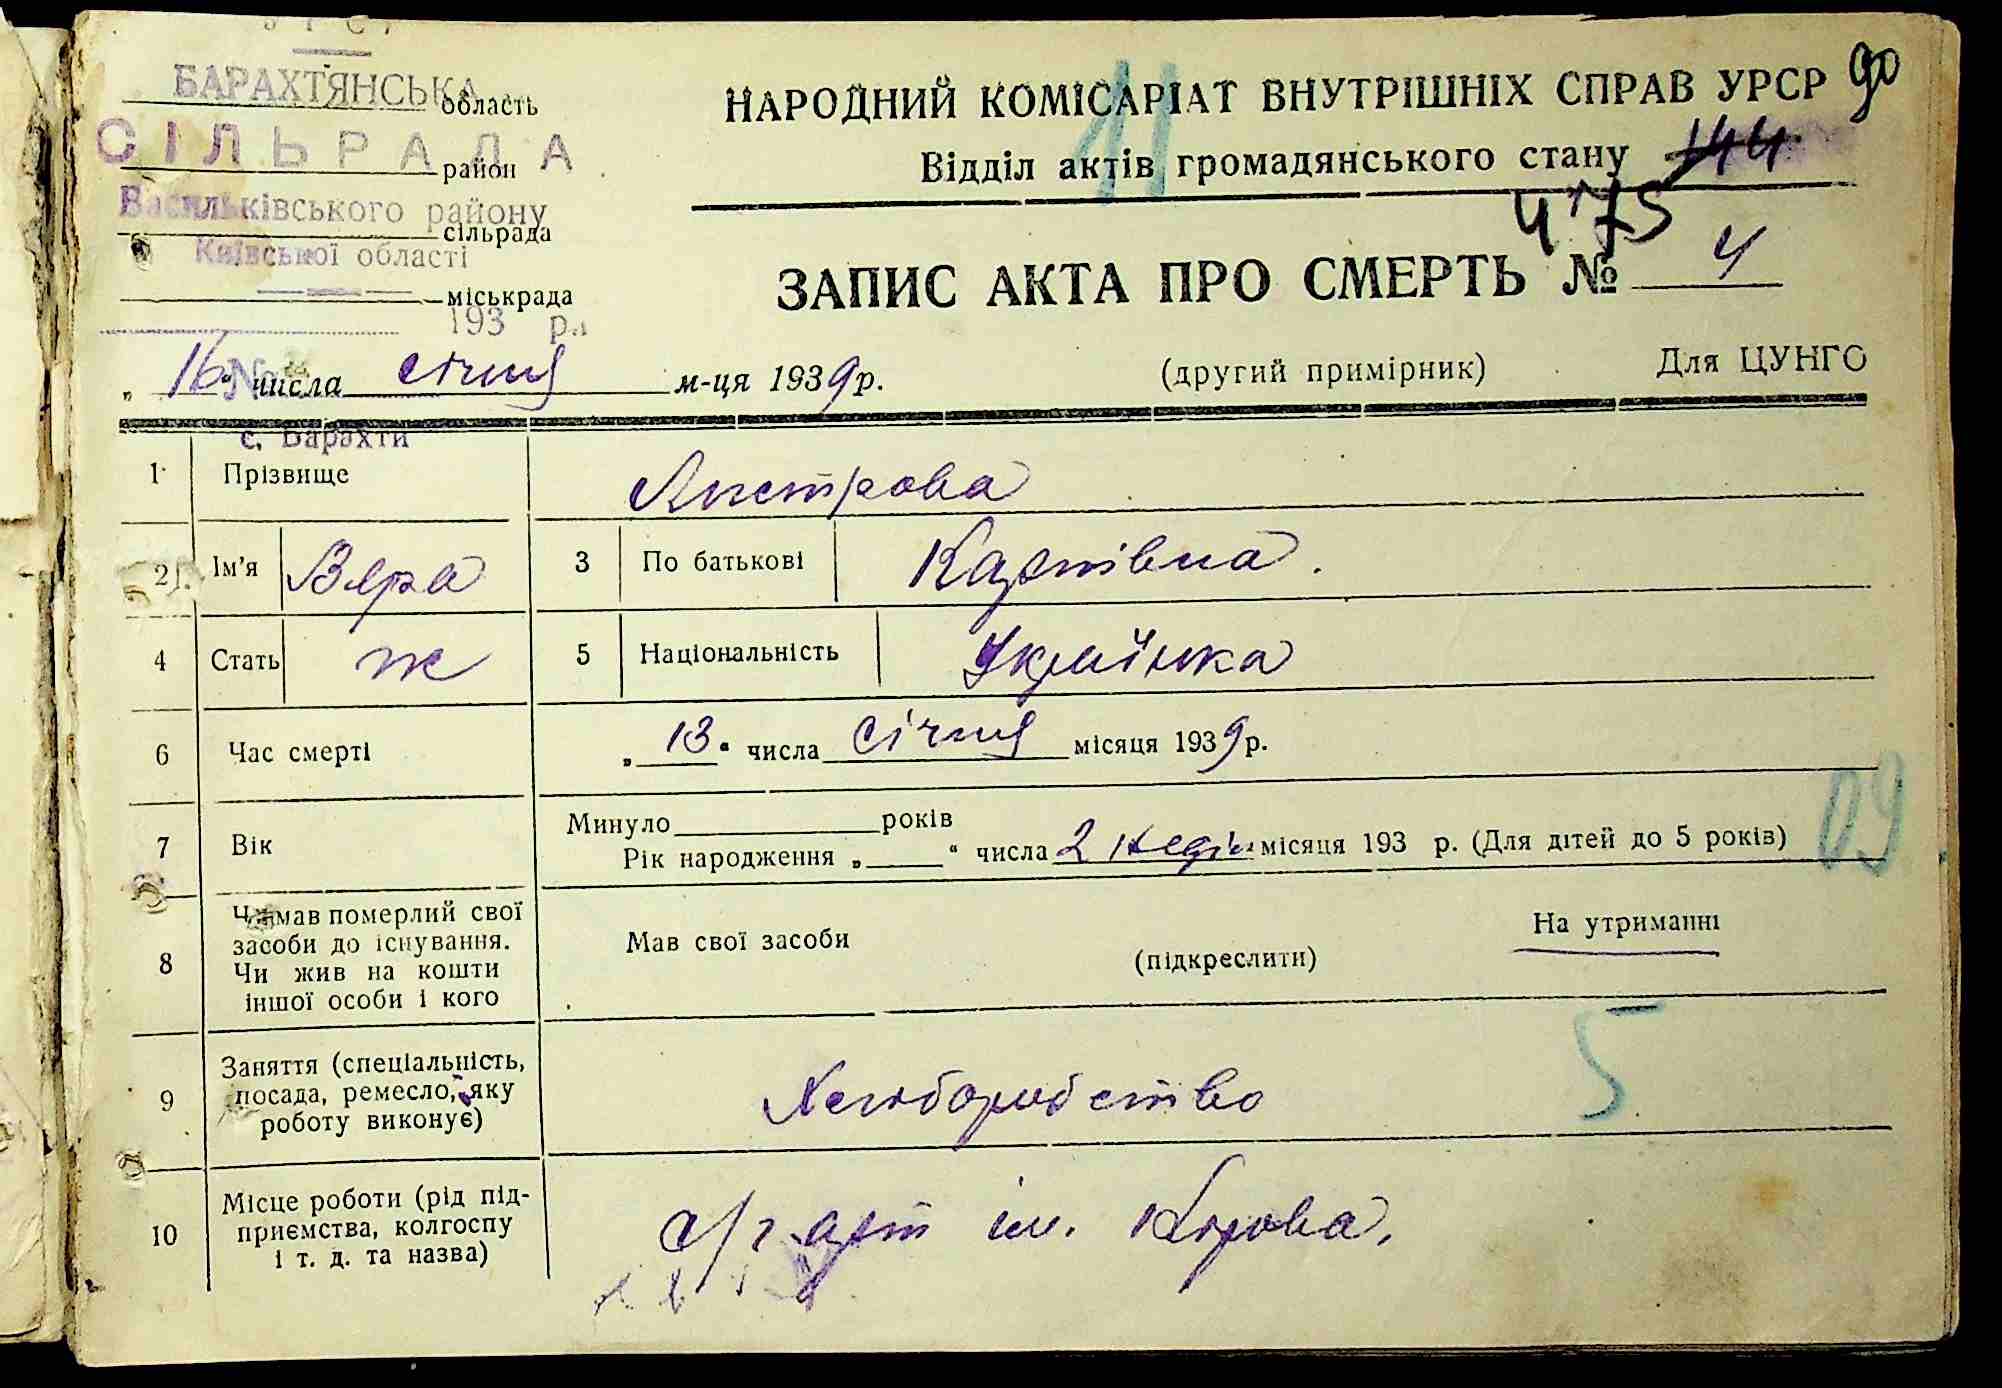 БАРАХТЯНСЬКА
область
СІЛЬРАДА
район
Васильківського району
сільрада
Київської області
міськрада
193 р.
№
с. Барахти
НАРОДНИЙ КОМІСАРІАТ ВНУТРІШНІХ СПРАВ УРСР 90
Відділ актів громадянського стану 144
11
475
ЗАПИС АКТА ПРО СМЕРТЬ № 4
„16“ числа січня м-ця 1939 р.
(другий примірник) Для ЦУНГО
1 Прізвище
2 Ім'я Вера 3 По батькові Карпівна.
4 Стать ж 5 Національність Українка
6 Час смерті „13“ числа січня місяця 1939 р.
7 Вік Минуло років
Рік народження „ “ числа 2 неділі місяця 193 р. (Для дітей до 5 років)
09
8 Чи мав померлий свої
засоби до існування.
Чи жив на кошти
іншої особи і кого
Мав свої засоби (підкреслити) На утриманні
9 Заняття (спеціальність,
посада, ремесло, яку
роботу виконує)
Хлюборобство
5
10 Місце роботи (рід під-
приємства, колгоспу
і т. д. та назва)
с/г арт ім. Кірова.